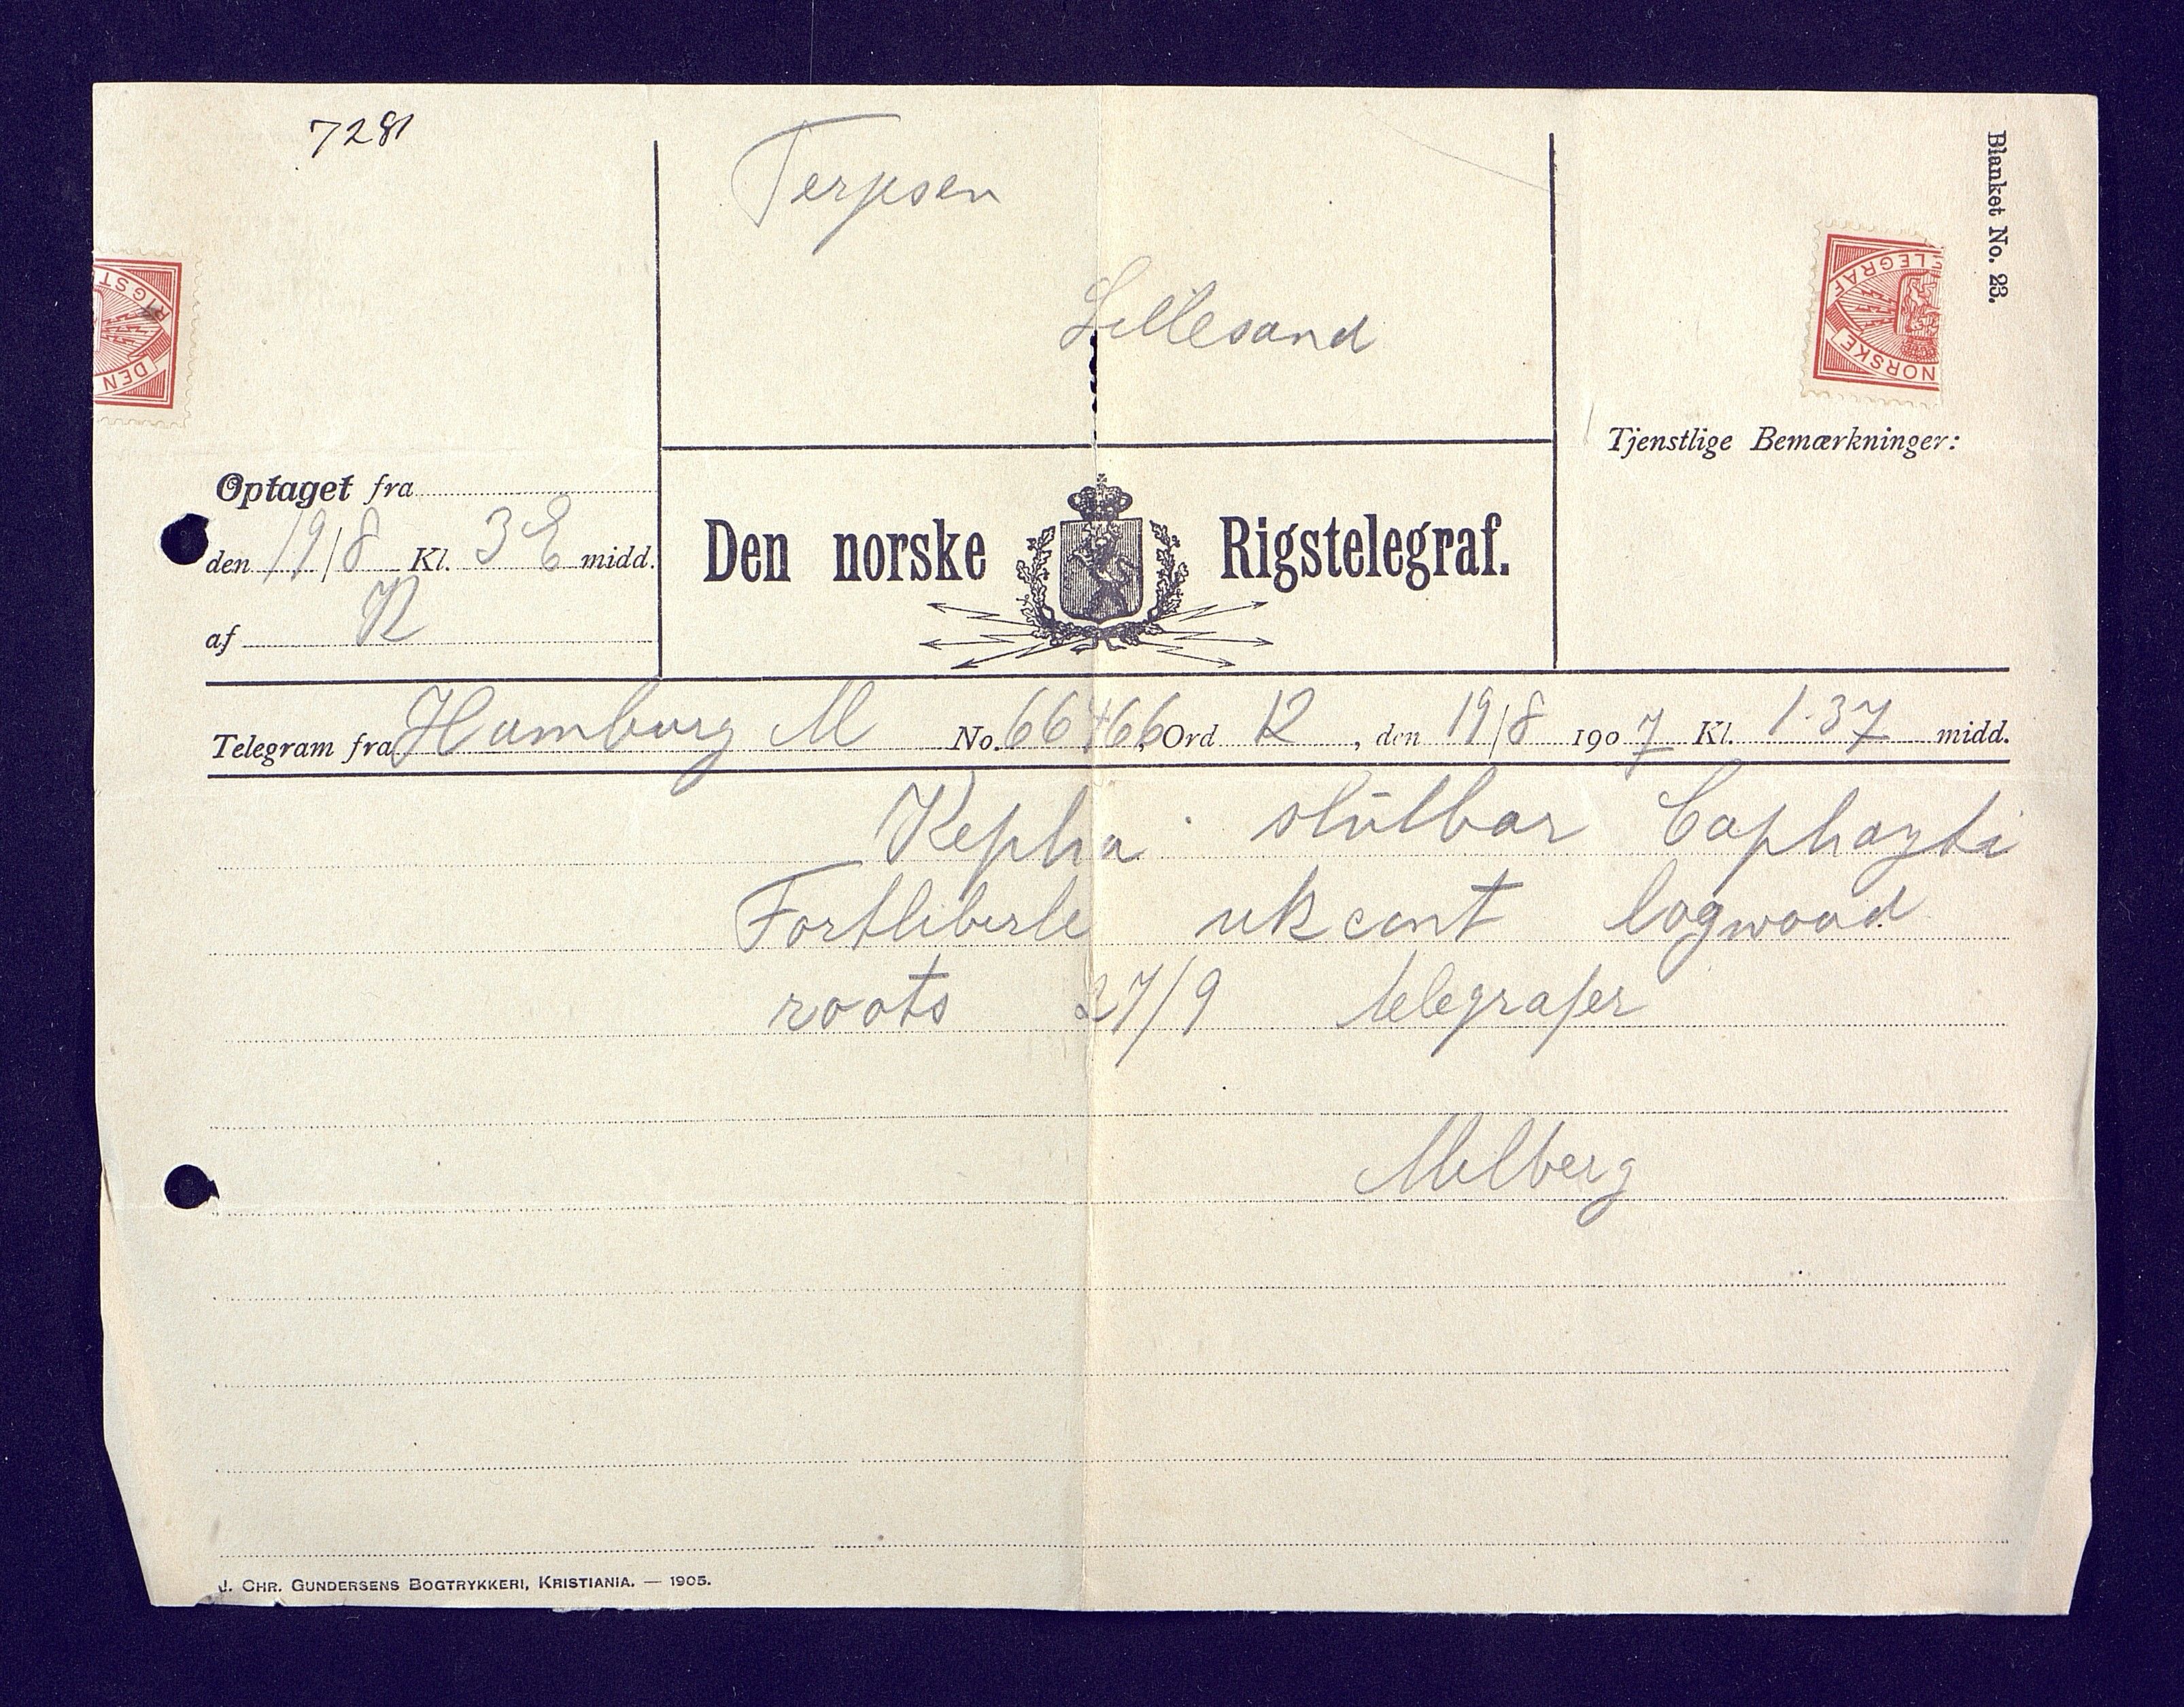 7281
Terjesen
Lillesand
Blanket No. 23.
RIGST
DEN
TELEGRAF
NORSKE
Tjenstlige Bemærkninger:
Optaget fra
den 19/8 Kl. 3 E midd.
af R
Den norske Rigstelegraf.
Telegram fra Hamburg M No. 66466 Ord 12, den 19/8 1907 Kl. 1.37 midd.
Kepha slutbar Caphayti
Fortliberte cent logwood
roots 27/9 telegrafer
Melberg
J. CHR. GUNDERSENS BOGTRYKKERI, KRISTIANIA. — 1905.